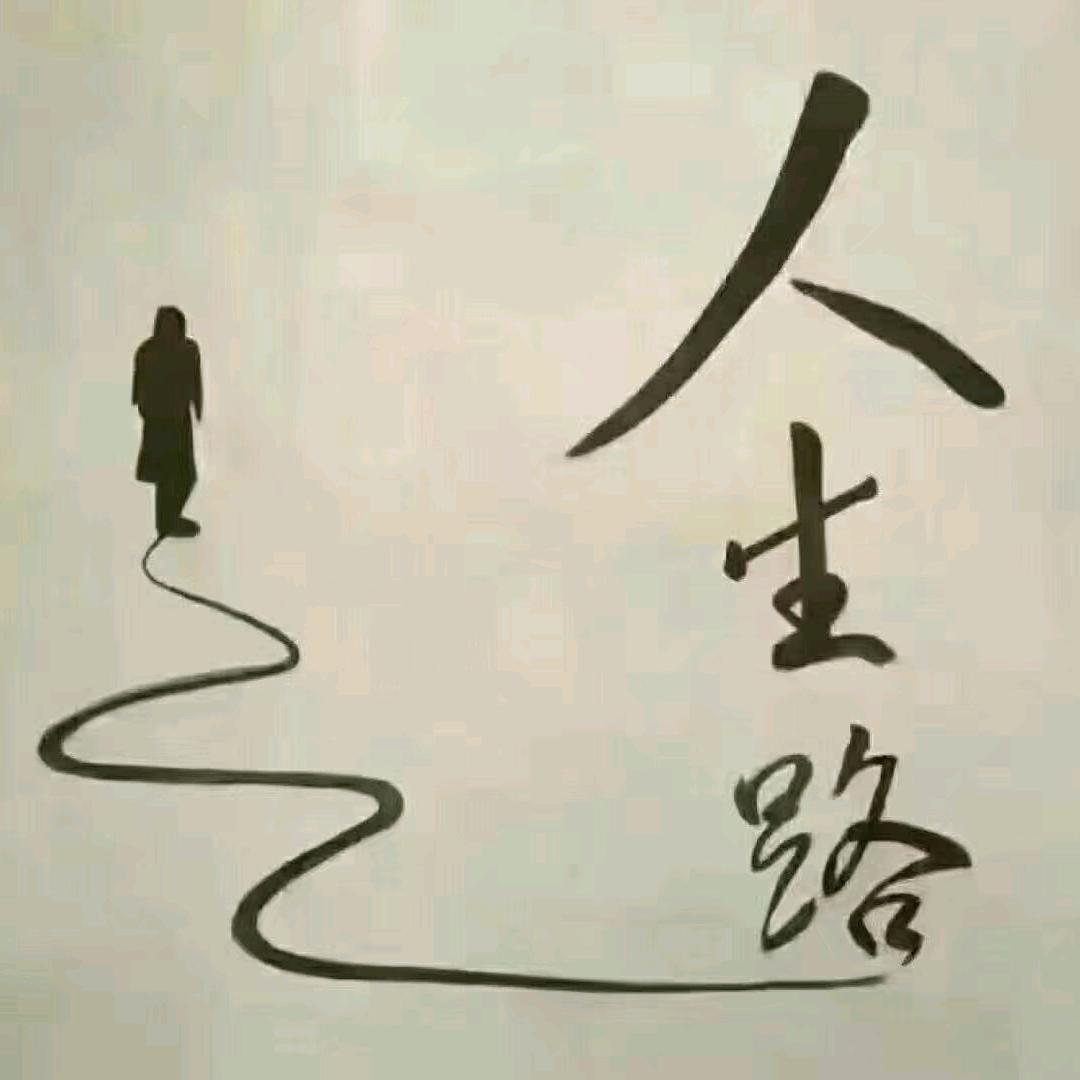 人生路